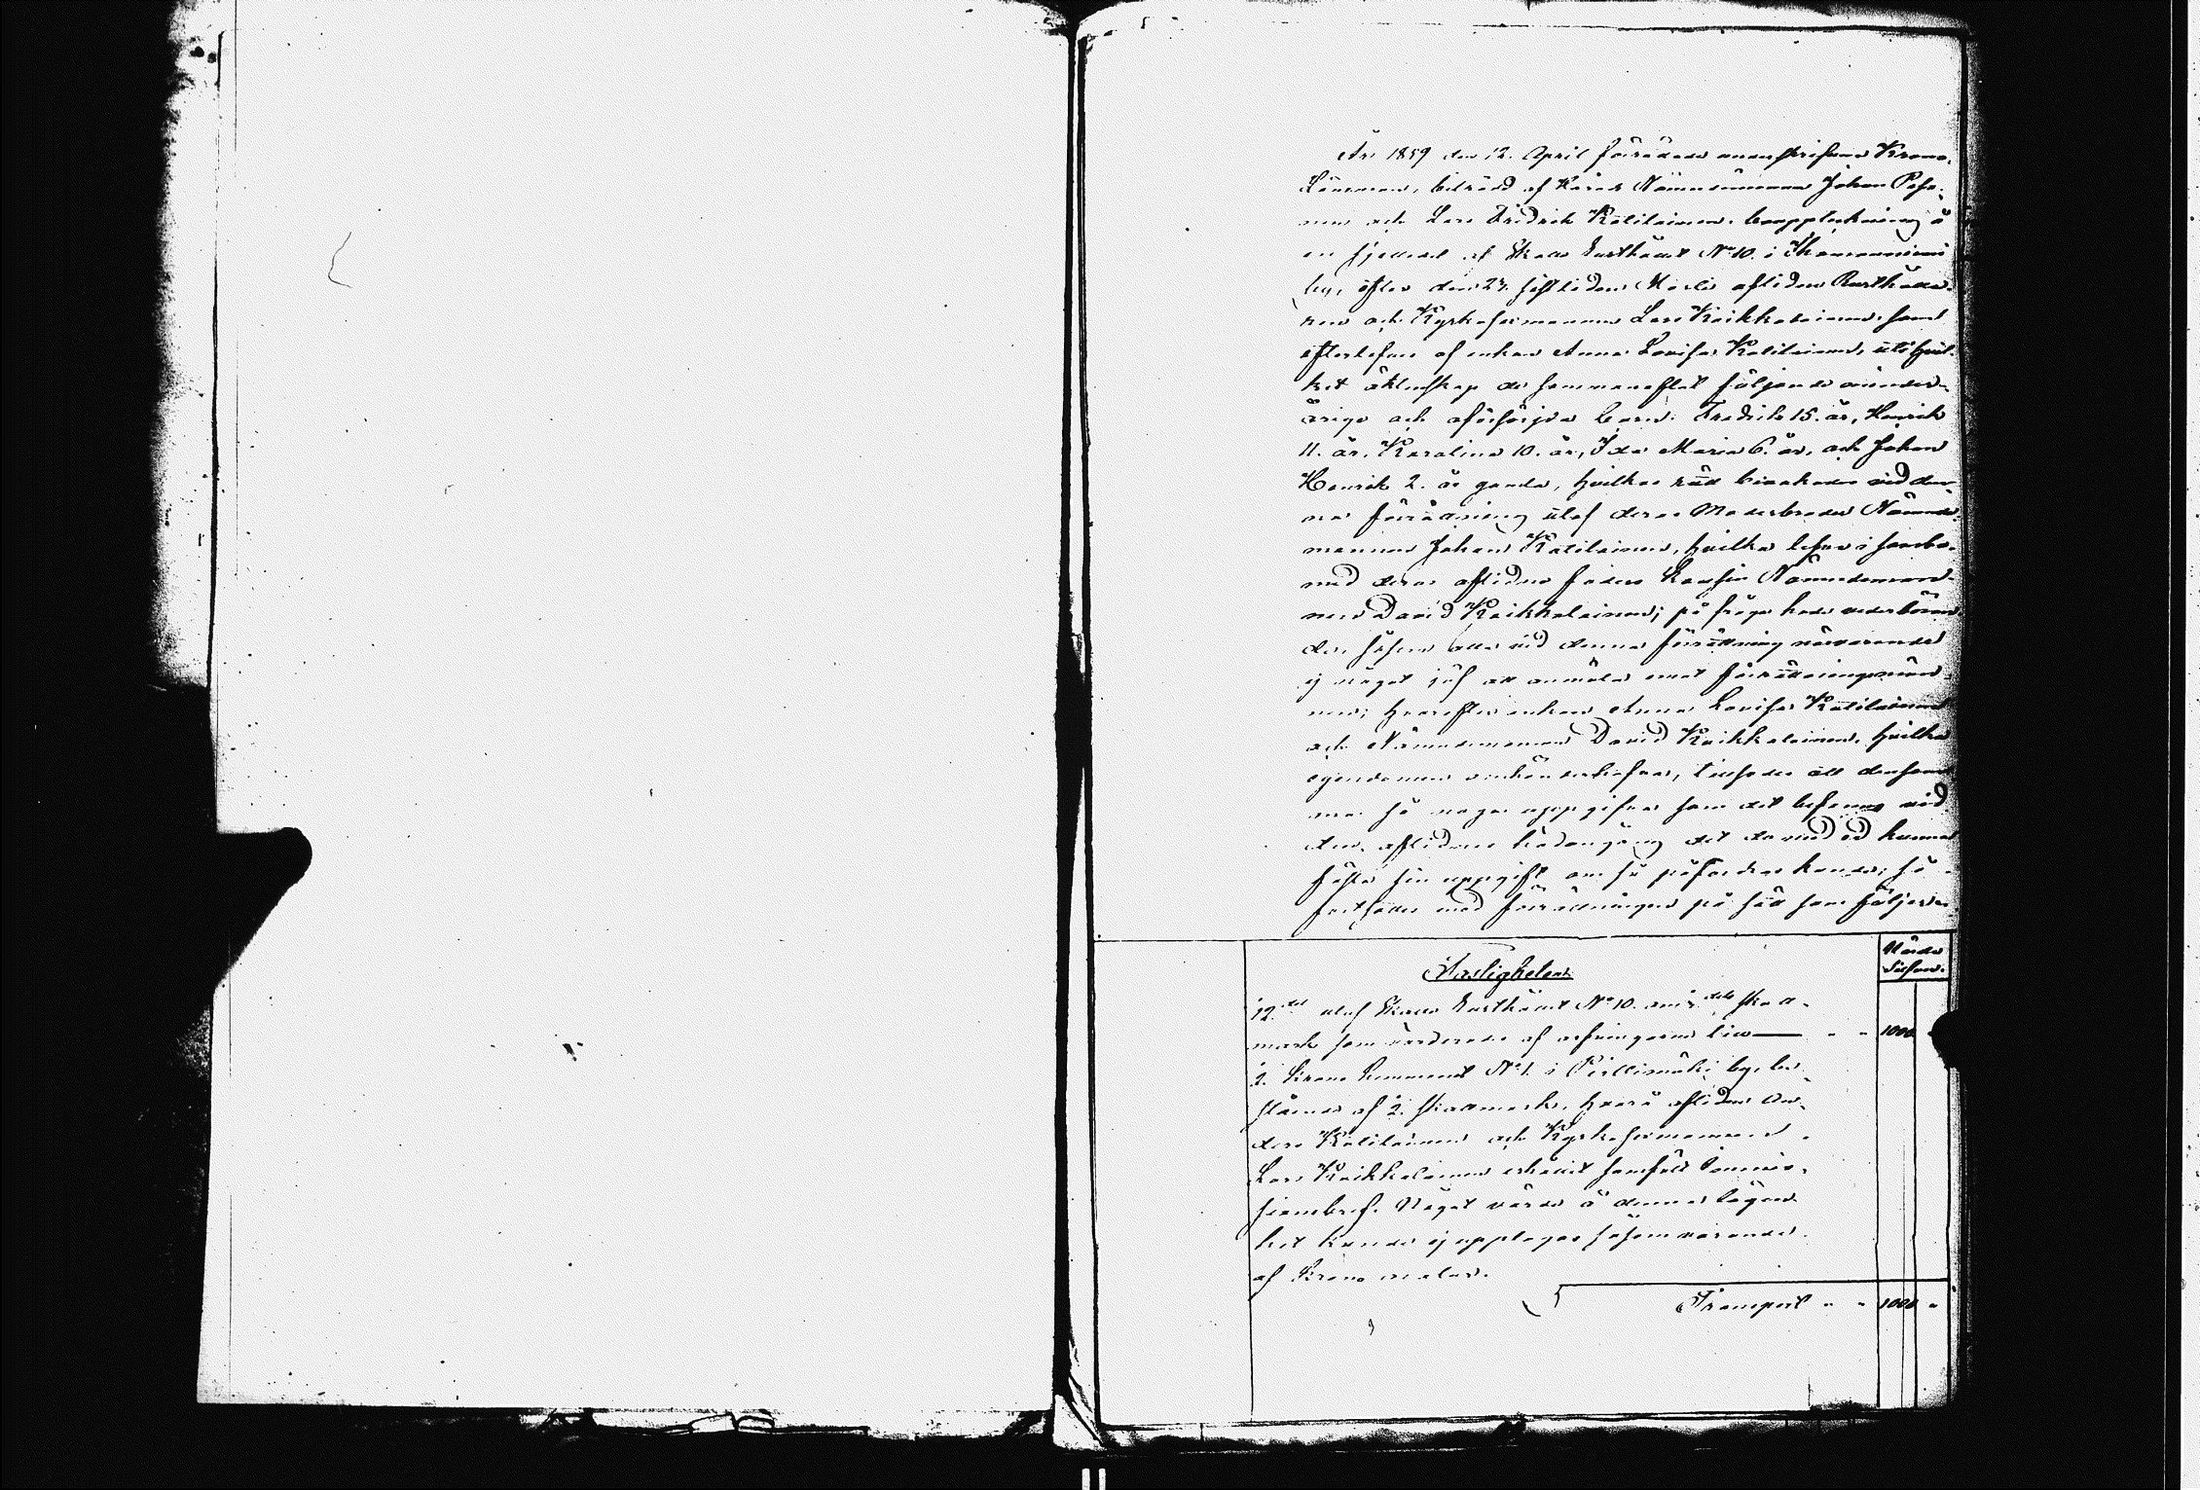 År 1859 den 12. April förrättade undertecknad Krono-
Länsman, biträdd af Herrar Nämndemännen Johan Peso-
nen och Lars Fredrik Kätiläinen, bouppteckning å
en fjerdedel af Skatte Rusthållet No 10. i Skamanniemi
by, efter den 27. sistlidne Martii aflidne Rusthålla-
ren och Kyrkoförmannen Lars Kaikkalainen, samt
efterlefves af enkan Anna Lovisa Kätiläinen, uti hvil-
ket äktenskap de sammanaflat följande omynder-
åriga och oförsörjda barn: Fredrik 15. år, Henrik
11. år, Karolina 10. år, Ida Maria 6. år, och Johan
Henrik 2. år gamla, hvilkas rätt bevakades vid den-
na förrättning utaf deras Moderbroder Nämnde-
mannen Johan Kätiläinen, hvilka lefva i sambo-
med deras aflidne faders Kusin Nämndeman-
nen David Kaikkalainen; på fråga hade vederböran-
de, såsom alla vid denna förrättning närvarande
ej något jäf att anmäla emot förrättningsmän-
nen; hvarefter enkan Anna Lovisa Kätiläinen
och Nämndemannen David Kaikkalainen, hvilka
egendomen omhänderhafva, tillsades att densam-
ma så noga uppgifva som det befanns vid
den aflidnes hädangång att de med ed kunna
fästa sin uppgift om så påfordras kunde; så
fortsattes med förrättningen på sätt som följer:
Fastigheten
Värde
Silfver.
12del utaf Skatte Rusthållet No 10. om dels skatt-
mark som värderades af arfvingarne till — " " 1000 "
2. Krono Hemmanet No 1. i Pirttimäki by, be-
stående af 2. skattmark, hvarå aflidne An-
ders Kätiläinen och Kyrkoförmannen
Lars Kaikkalainen erhållit samfäldt Immis-
sionsbref. Något värde å denna lägen-
het kunde ej upptagas såsom varande
af Krono natur.
Transport " " 1000 "